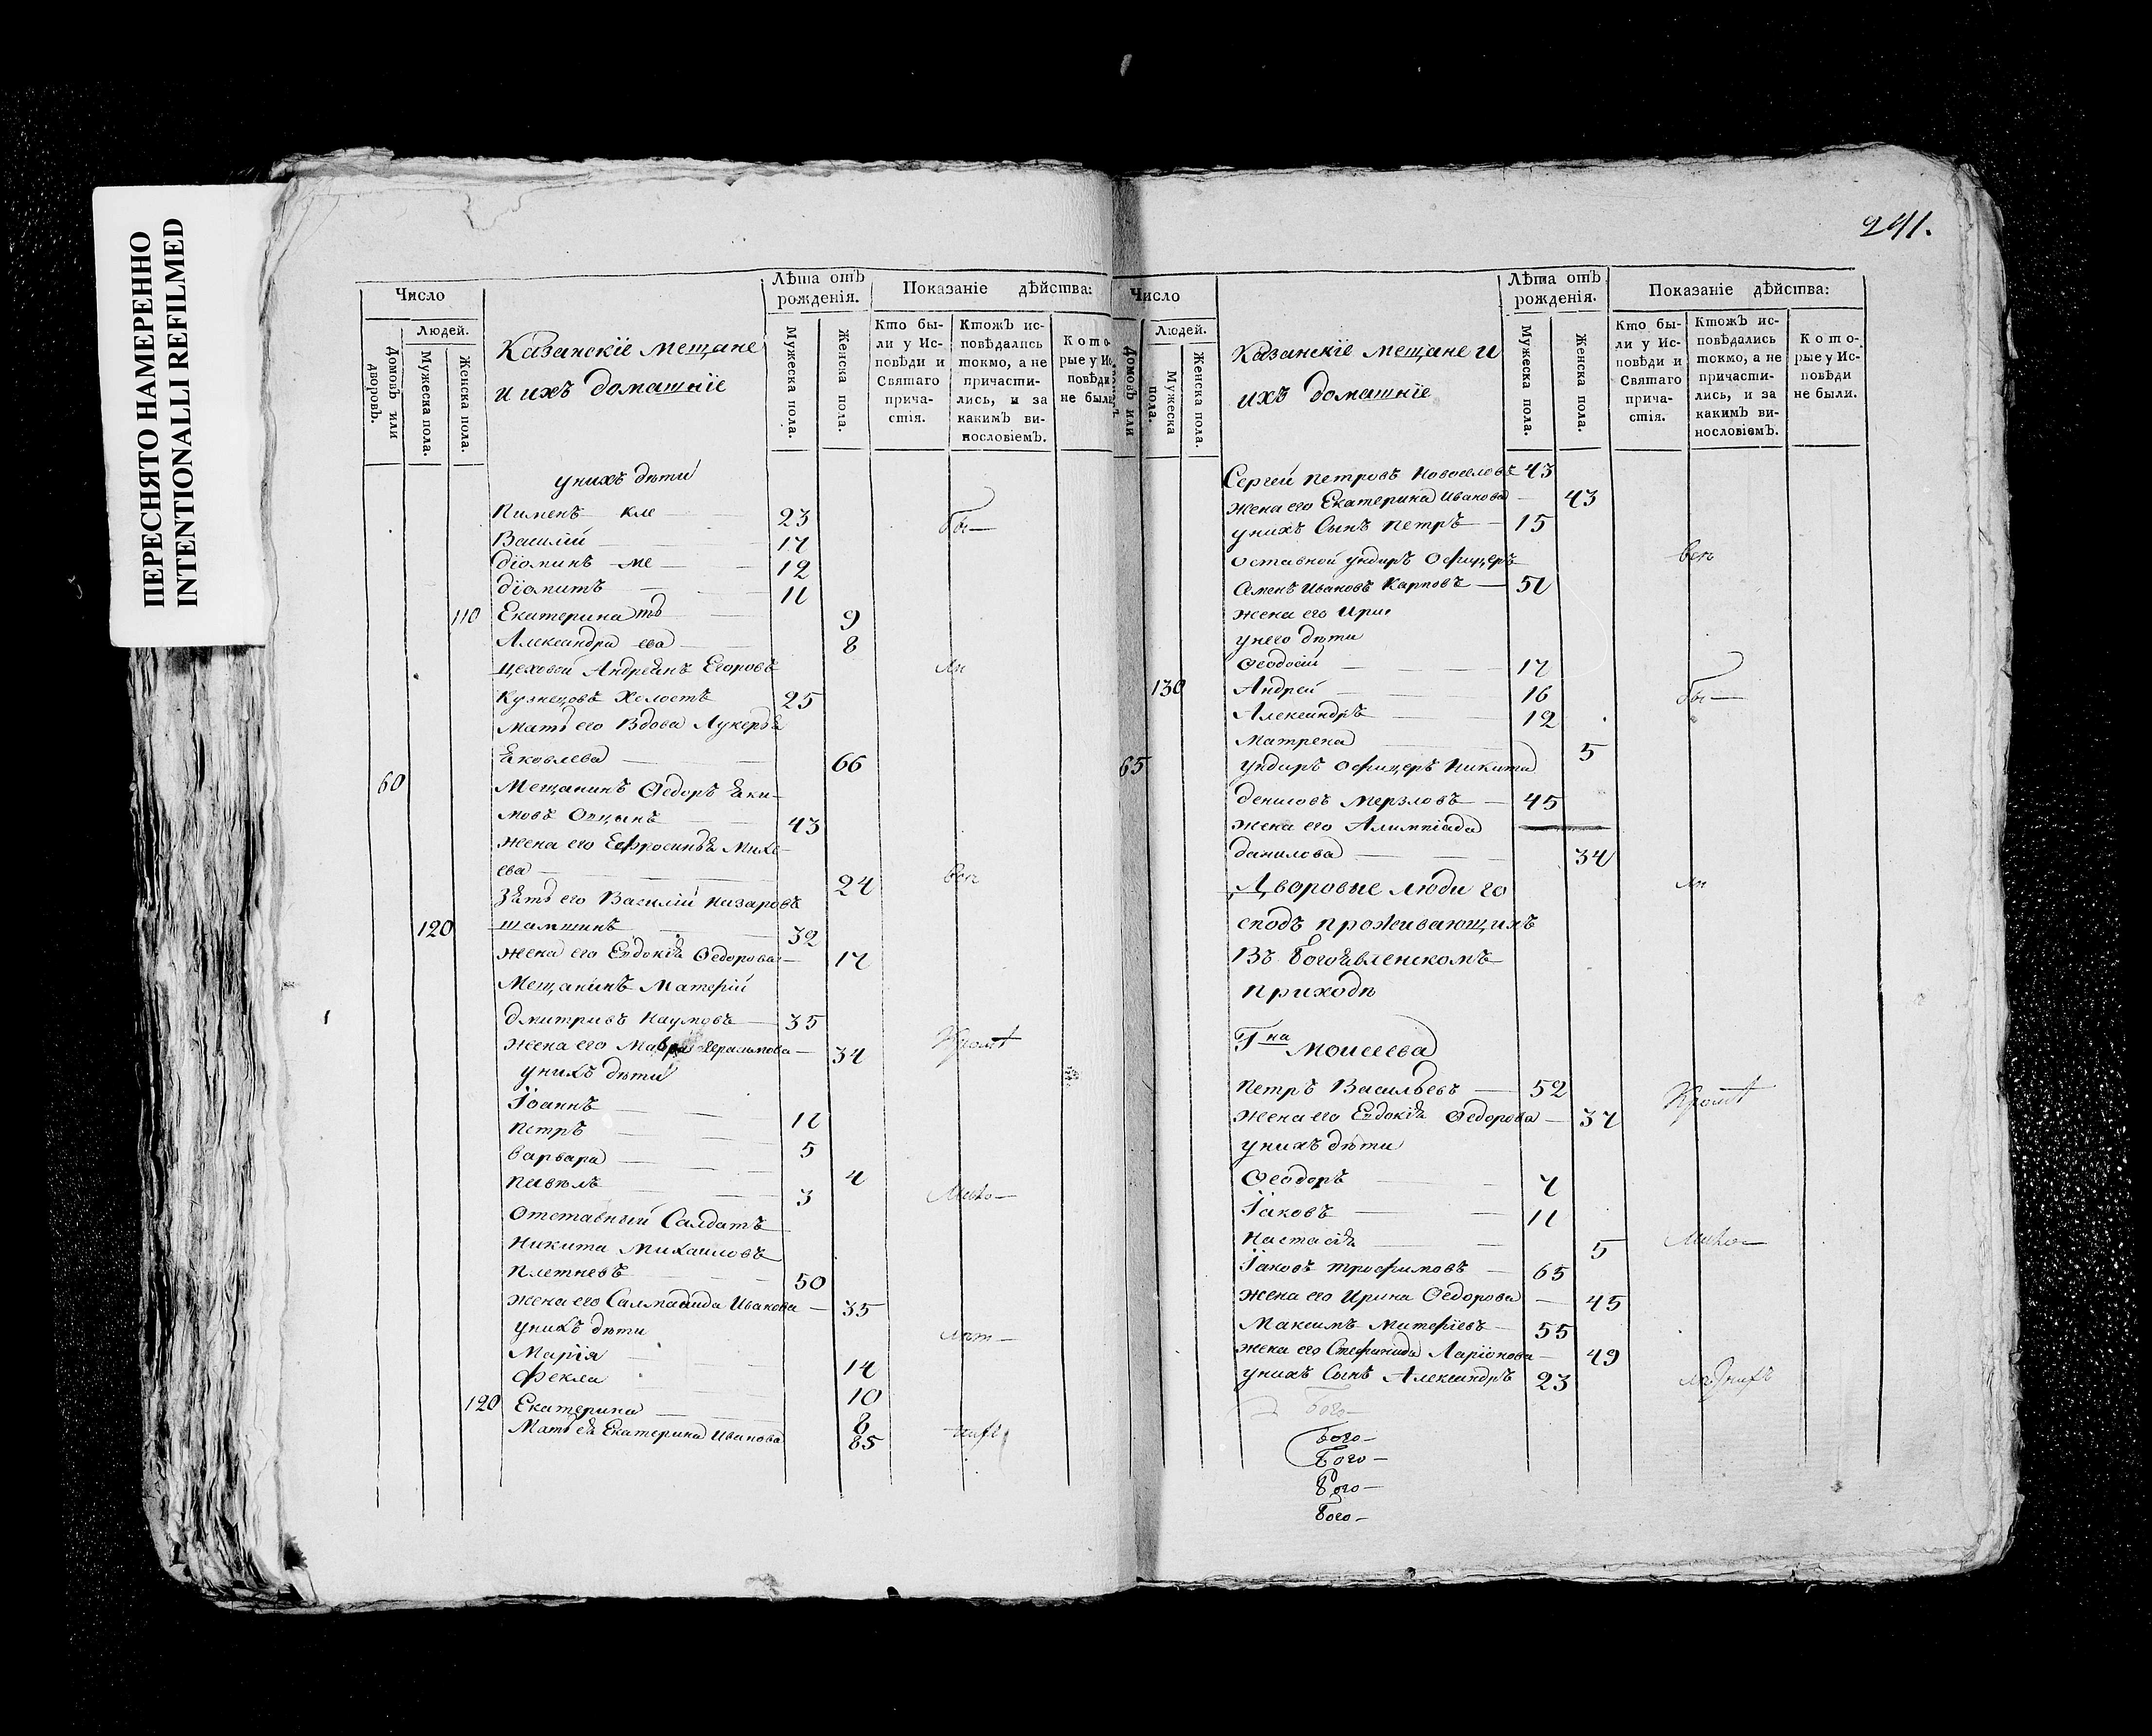 ПЕРЕСНЯТО НАМЕРЕННО
INTENTIONALLI REFILMED
Число
Людей.
Домовъ или дворовъ.
Мужеска пола.
Женска пола.
Казанскіе мещане
и ихъ домашніе
Лѣта отъ рожденія.
Мужеска пола.
Женска пола.
Показаніе дѣйства:
Кто были у Исповѣди и Святаго причастія.
Ктожъ исповѣдались токмо, а не причастились, и за какимъ винословіемъ.
Которые у Исповѣди не были
у нихъ дѣти
Пименъ кле 23 бы
Василій 17
Діомидъ 12
Діомитъ 11
110 Екатерина 9
Александра 8
цеховой Андреянъ Егоровъ
Кузнецовъ Холостъ 25
Мать его Вдова Лукерья
Яковлева 66
60 Мещанинъ Ѳедоръ Яки-
мовъ 43
жена его Ефросинья Михе-
ева 24
Зять его Василій Назаровъ
120 шамшинъ 32
жена его Евдокія Ѳедорова 17
Мещанинъ Матерій
Дмитривъ Наумовъ 35
жена его Мавра Герасимова 34
у нихъ дѣти
Іоаннъ 11
Петръ 5
Варвара 4
Павелъ 3
Отставный Салдатъ
Никита Михаиловъ
Плетневъ 50
жена его Иванова 35
у нихъ дѣти
Марія 14
Фекла 10
120 Екатерина 8
Мать ея Екатерина Иванова 85
291.
Число
Людей.
Домовъ или
Мужеска пола.
Женска пола.
Казанскіе мещане и
ихъ домашніе
Лѣта отъ рожденія.
Мужеска пола.
Женска пола.
Показаніе дѣйства:
Кто были у Исповѣди и Святаго причастія.
Ктожъ исповѣдались токмо, а не причастились, и за какимъ винословіемъ.
Которые у Исповѣди не были.
Сергей Петровъ Новоселовъ 43
жена его Екатерина Иванова 43
у нихъ Сынъ Петръ 15
оставной ундиръ Офицеръ
Семенъ Ивановъ Карповъ 51
жена его Ири
у него дѣти
Ѳеодосій 17
130 Андрей 16 бы
Александръ 12
Матрена 5
65 ундиръ Офицеръ Никита
Мерзловъ 45
жена его Алимпіада
Данилова 34
Дворовые люди го
сподъ проживающихъ
Въ Богоявленскомъ
приходѣ
Гна Моисеева
Петръ Васильевъ 52
жена его Евдокія Ѳедорова 37
у нихъ дѣти
Ѳеодоръ 7
Іаковъ 11
Настасія 5
Іаковъ трофимовъ 65
жена его Ирина Ѳедорова 45
Максимъ 55
жена его Стефанида Ларіонова 49
у нихъ Сынъ Александръ 23
Бого
Бого
Бого
Бого
Бого